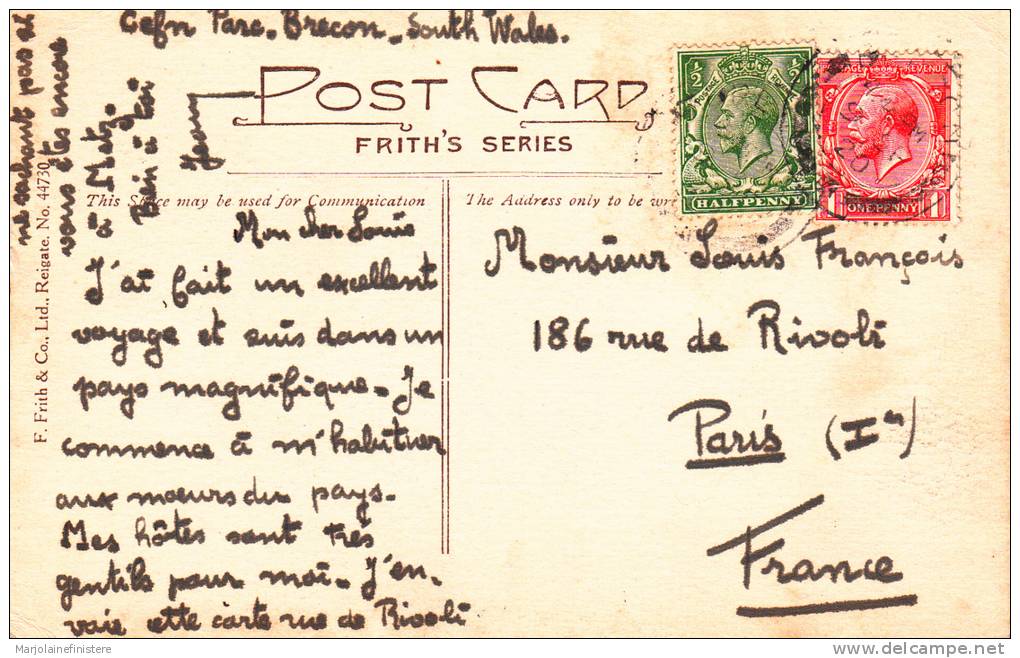 Cefn Parc. Brecon. South Wales.
POST CARD
FRITH'S SERIES
This Space may be used for Communication
The Address only to be wr
F. Frith & Co., Ltd., Reigate. No. 44730
HALFPENNY
POSTAGE REVENUE
ONE PENNY
Mon cher Louis
J'ai fait un excellent
voyage et suis dans un
pays magnifique. Je
commence à m'habituer
aux mœurs du pays.
Mes hôtes sont très
gentils pour moi. J'en-
voie cette carte rue de Rivoli
ne sachant pas si
vous êtes encore
à Metz.
Bien à toi
Jean
Monsieur Louis François
186 rue de Rivoli
Paris (Ier)
France
Marjolainefinistere
delcampe.net